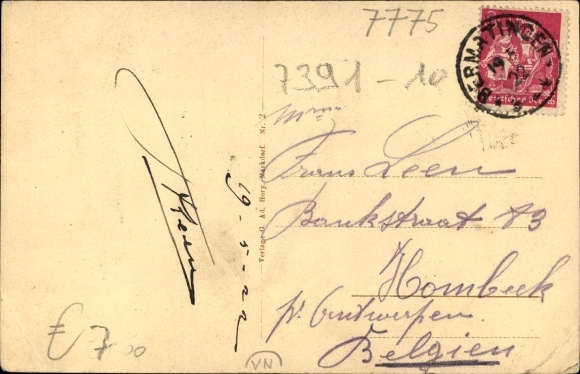 7775
7391-10
BERMATINGEN
19 5 22
Deutsches Reich
Mme
Frans Leen
Bankstraat 13
Hombeek
pr. Antwerpen
Belgien
Verlag G. Ad. Hory, Markdorf. Nr. 2
19-5-22
£ 7.00
VN